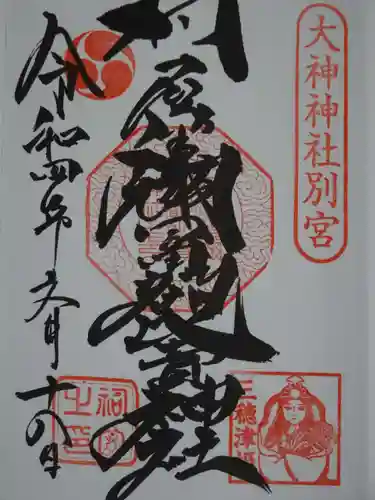 大神神社別宮
村屋坐彌冨都比賣神社
令和四年文月十八日
三穂津姫